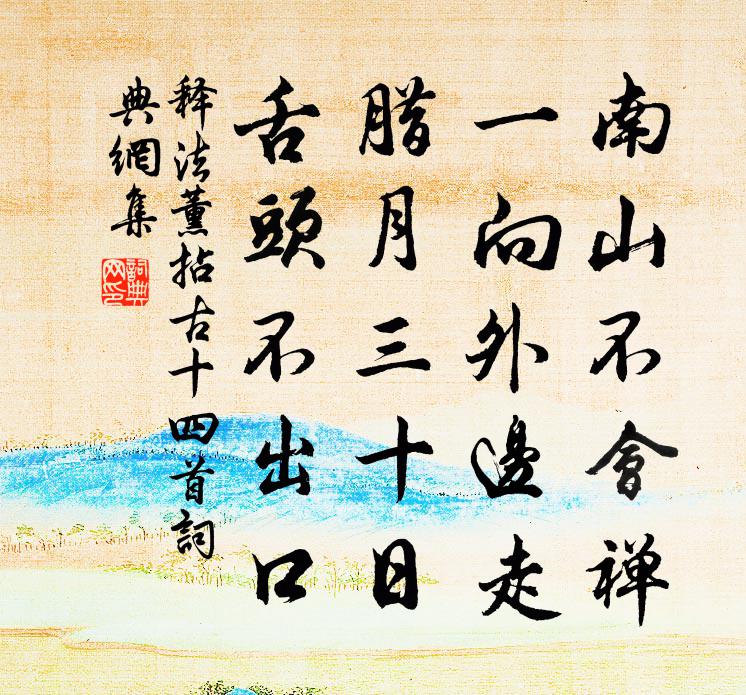 南山不會禅
一向外邊走
腊月三十日
舌頭不出口
释法薰拈古十四首詞
典網集
詞典
网印